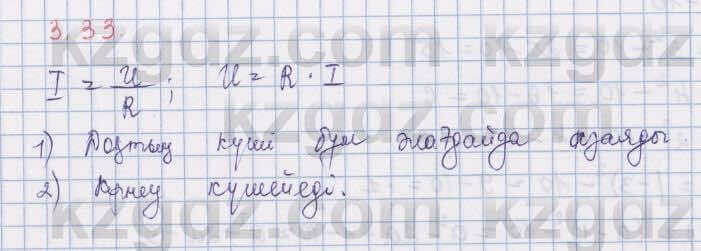 3.33.
I = U/R ; U = R · I
1) Доқтың күші бұл жағдайда азаяды.
2) Кернеу күшейеді.
kzgdz.com kzgdz
kzgdz.com kzgdz
kzgdz.com kzgdz